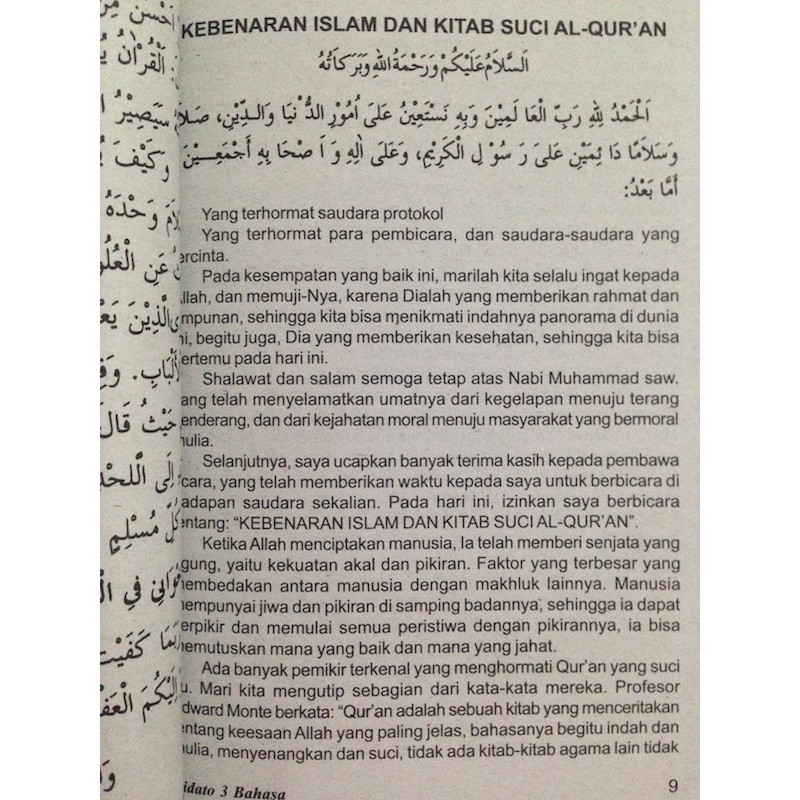 KEBENARAN ISLAM DAN KITAB SUCI AL-QUR'AN
اَلسَّلاَمُ عَلَيْكُمْ وَرَحْمَةُ اللهِ وَبَرَكَاتُهُ
اَلْحَمْدُ لِلّٰهِ رَبِّ الْعَا لَمِيْنَ وَبِهِ نَسْتَعِيْنُ عَلَى اُمُوْرِ الدُّنْيَا وَالدِّيْنِ، صَلاَ
وَسَلاَمًا دَا ئِمَيْنِ عَلَى رَ سُوْ لِ الْكَرِيْمِ، وَعَلَى اٰلِهِ وَ اَ صْحَا بِهِ اَجْمَعِيْنَ
اَمَّا بَعْدُ:
Yang terhormat saudara protokol
Yang terhormat para pembicara, dan saudara-saudara yang
ercinta.
Pada kesempatan yang baik ini, marilah kita selalu ingat kepada
llah, dan memuji-Nya, karena Dialah yang memberikan rahmat dan
mpunan, sehingga kita bisa menikmati indahnya panorama di dunia
ni, begitu juga, Dia yang memberikan kesehatan, sehingga kita bisa
ertemu pada hari ini.
Shalawat dan salam semoga tetap atas Nabi Muhammad saw.
ang telah menyelamatkan umatnya dari kegelapan menuju terang
enderang, dan dari kejahatan moral menuju masyarakat yang bermoral
nulia.
Selanjutnya, saya ucapkan banyak terima kasih kepada pembawa
cara, yang telah memberikan waktu kepada saya untuk berbicara di
adapan saudara sekalian. Pada hari ini, izinkan saya berbicara
entang: "KEBENARAN ISLAM DAN KITAB SUCI AL-QUR'AN".
Ketika Allah menciptakan manusia, Ia telah memberi senjata yang
gung, yaitu kekuatan akal dan pikiran. Faktor yang terbesar yang
nembedakan antara manusia dengan makhluk lainnya. Manusia
nempunyai jiwa dan pikiran di samping badannya, sehingga ia dapat
erpikir dan memulai semua peristiwa dengan pikirannya, ia bisa
nemutuskan mana yang baik dan mana yang jahat.
Ada banyak pemikir terkenal yang menghormati Qur'an yang suci
u. Mari kita mengutip sebagian dari kata-kata mereka. Profesor
dward Monte berkata: "Qur'an adalah sebuah kitab yang menceritakan
entang keesaan Allah yang paling jelas, bahasanya begitu indah dan
nulia, menyenangkan dan suci, tidak ada kitab-kitab agama lain tidak
idato 3 Bahasa
9